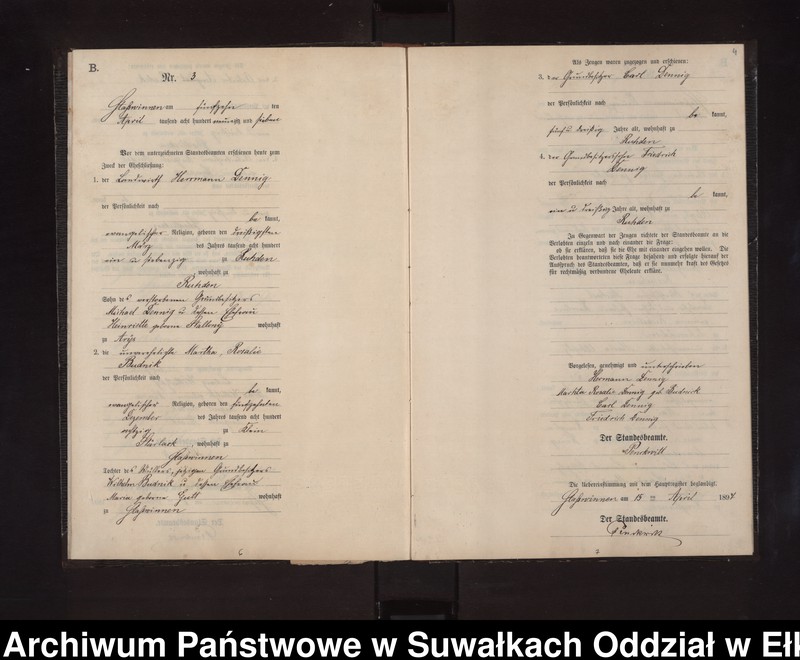 B.
Nr. 3
am fünfzehn ten
April tausend acht hundert neunzig und sieben
Vor dem unterzeichneten Standesbeamten erschienen heute zum
Zweck der Eheschließung:
1. der Landwirth Herrmann Dennig
der Persönlichkeit nach
be kannt,
evangelischer Religion, geboren den dreißigsten
März des Jahres tausend acht hundert
ein u siebenzig zu Ruhden
wohnhaft zu
Ruhden
Sohn des verstorbenen Grundbesitzers
Michael Dennig u dessen Ehefrau
Henriette geborene wohnhaft
zu Arys
2. die unverehelichte Martha, Rosalie
Budnik
der Persönlichkeit nach
be kannt,
evangelischer Religion, geboren den fünfzehnten
Dezember des Jahres tausend acht hundert
achtzig zu Klein
Stürlack, wohnhaft zu
Tochter des Müllers, jetzigen Grundbesitzers
Wilhelm Budnik u dessen Ehefrau
Maria geborene wohnhaft
zu
6
4
Als Zeugen waren zugezogen und erschienen:
3. der Grundbesitzer Carl Dennig
der Persönlichkeit nach
be kannt,
fünf u dreißig Jahre alt, wohnhaft zu
Ruhden
4. der Friedrich
Dennig
der Persönlichkeit nach
be kannt,
ein u dreißig Jahre alt, wohnhaft zu
Ruhden
In Gegenwart der Zeugen richtete der Standesbeamte an die
Verlobten einzeln und nach einander die Frage:
ob sie erklären, daß sie die Ehe mit einander eingehen wollen. Die
Verlobten beantworteten diese Frage bejahend und erfolgte hierauf der
Ausspruch des Standesbeamten, daß er sie nunmehr kraft des Gesetzes
für rechtmäßig verbundene Eheleute erkläre.
Vorgelesen, genehmigt und unterschrieben
Hermann Dennig
Martha Rosalie Dennig geb Budnick
Carl Dennig
Friedrich Dennig
Der Standesbeamte.
Die Uebereinstimmung mit dem Hauptregister beglaubigt.
am 15 ten April 1897
Der Standesbeamte.
Archiwum Państwowe w Suwałkach Oddział w Ełk